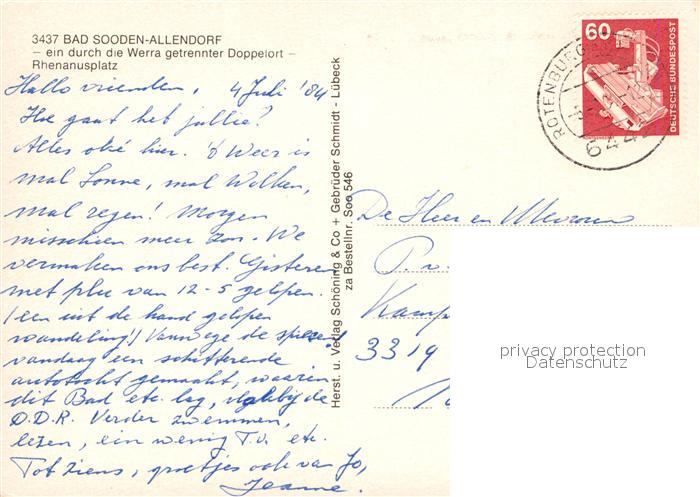 3437 BAD SOODEN-ALLENDORF
– ein durch die Werra getrennter Doppelort –
Rhenanusplatz
Hallo vrienden, 4 Juli '84
Hoe gaat het jullie?
Alles oké hier. 't Weer is
mal Sonne, mal Wolken,
mal regen! Morgen
misschien meer zon. We
vermaken ons best. Gisteren
met plu van 12-5 gelopen.
(een uit de hand gelopen
wandeling!) Vanwege de spieren
vandaag een schitterende
autotocht gemaakt, waarin
dit Bad etc. lag, vlakbij de
D.D.R. Verder zwemmen,
lezen, een wenig T.V. etc.
Tot ziens, groetjes ook van Jo,
Jeanne.
Herst. u. Verlag Schöning & Co + Gebrüder Schmidt - Lübeck
za Bestellnr. Soo 546
60
DEUTSCHE BUNDESPOST
ROTENBURG
644
De Heer en Mevrouw
P. v.
Kamp
3319
privacy protection
Datenschutz